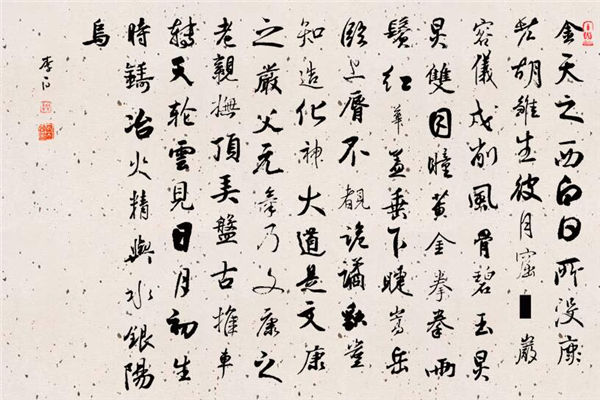 金天之西白日所没康
老胡雛生彼月窟巖
容儀戍削風骨碧玉炅
炅雙目瞳黄金拳拳兩
鬢紅華蓋垂下睫嵩岳
臨上脣不覩詭譎貌豈
知造化神大道是文康
之嚴父元氣乃文康之
老親撫頂弄盤古推車
轉天輪雲見日月初生
時鑄冶火精與水銀陽
烏
李白